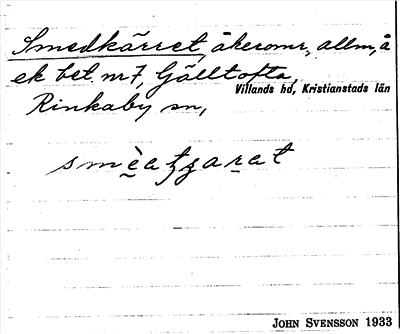 Smedkärret, åkeromr., allm, å
ek bet. nr 7, Gälltofta,
Villands hd, Kristianstads län
Rinkaby sn,
smèatʒaʀat
JOHN SVENSSON 1933